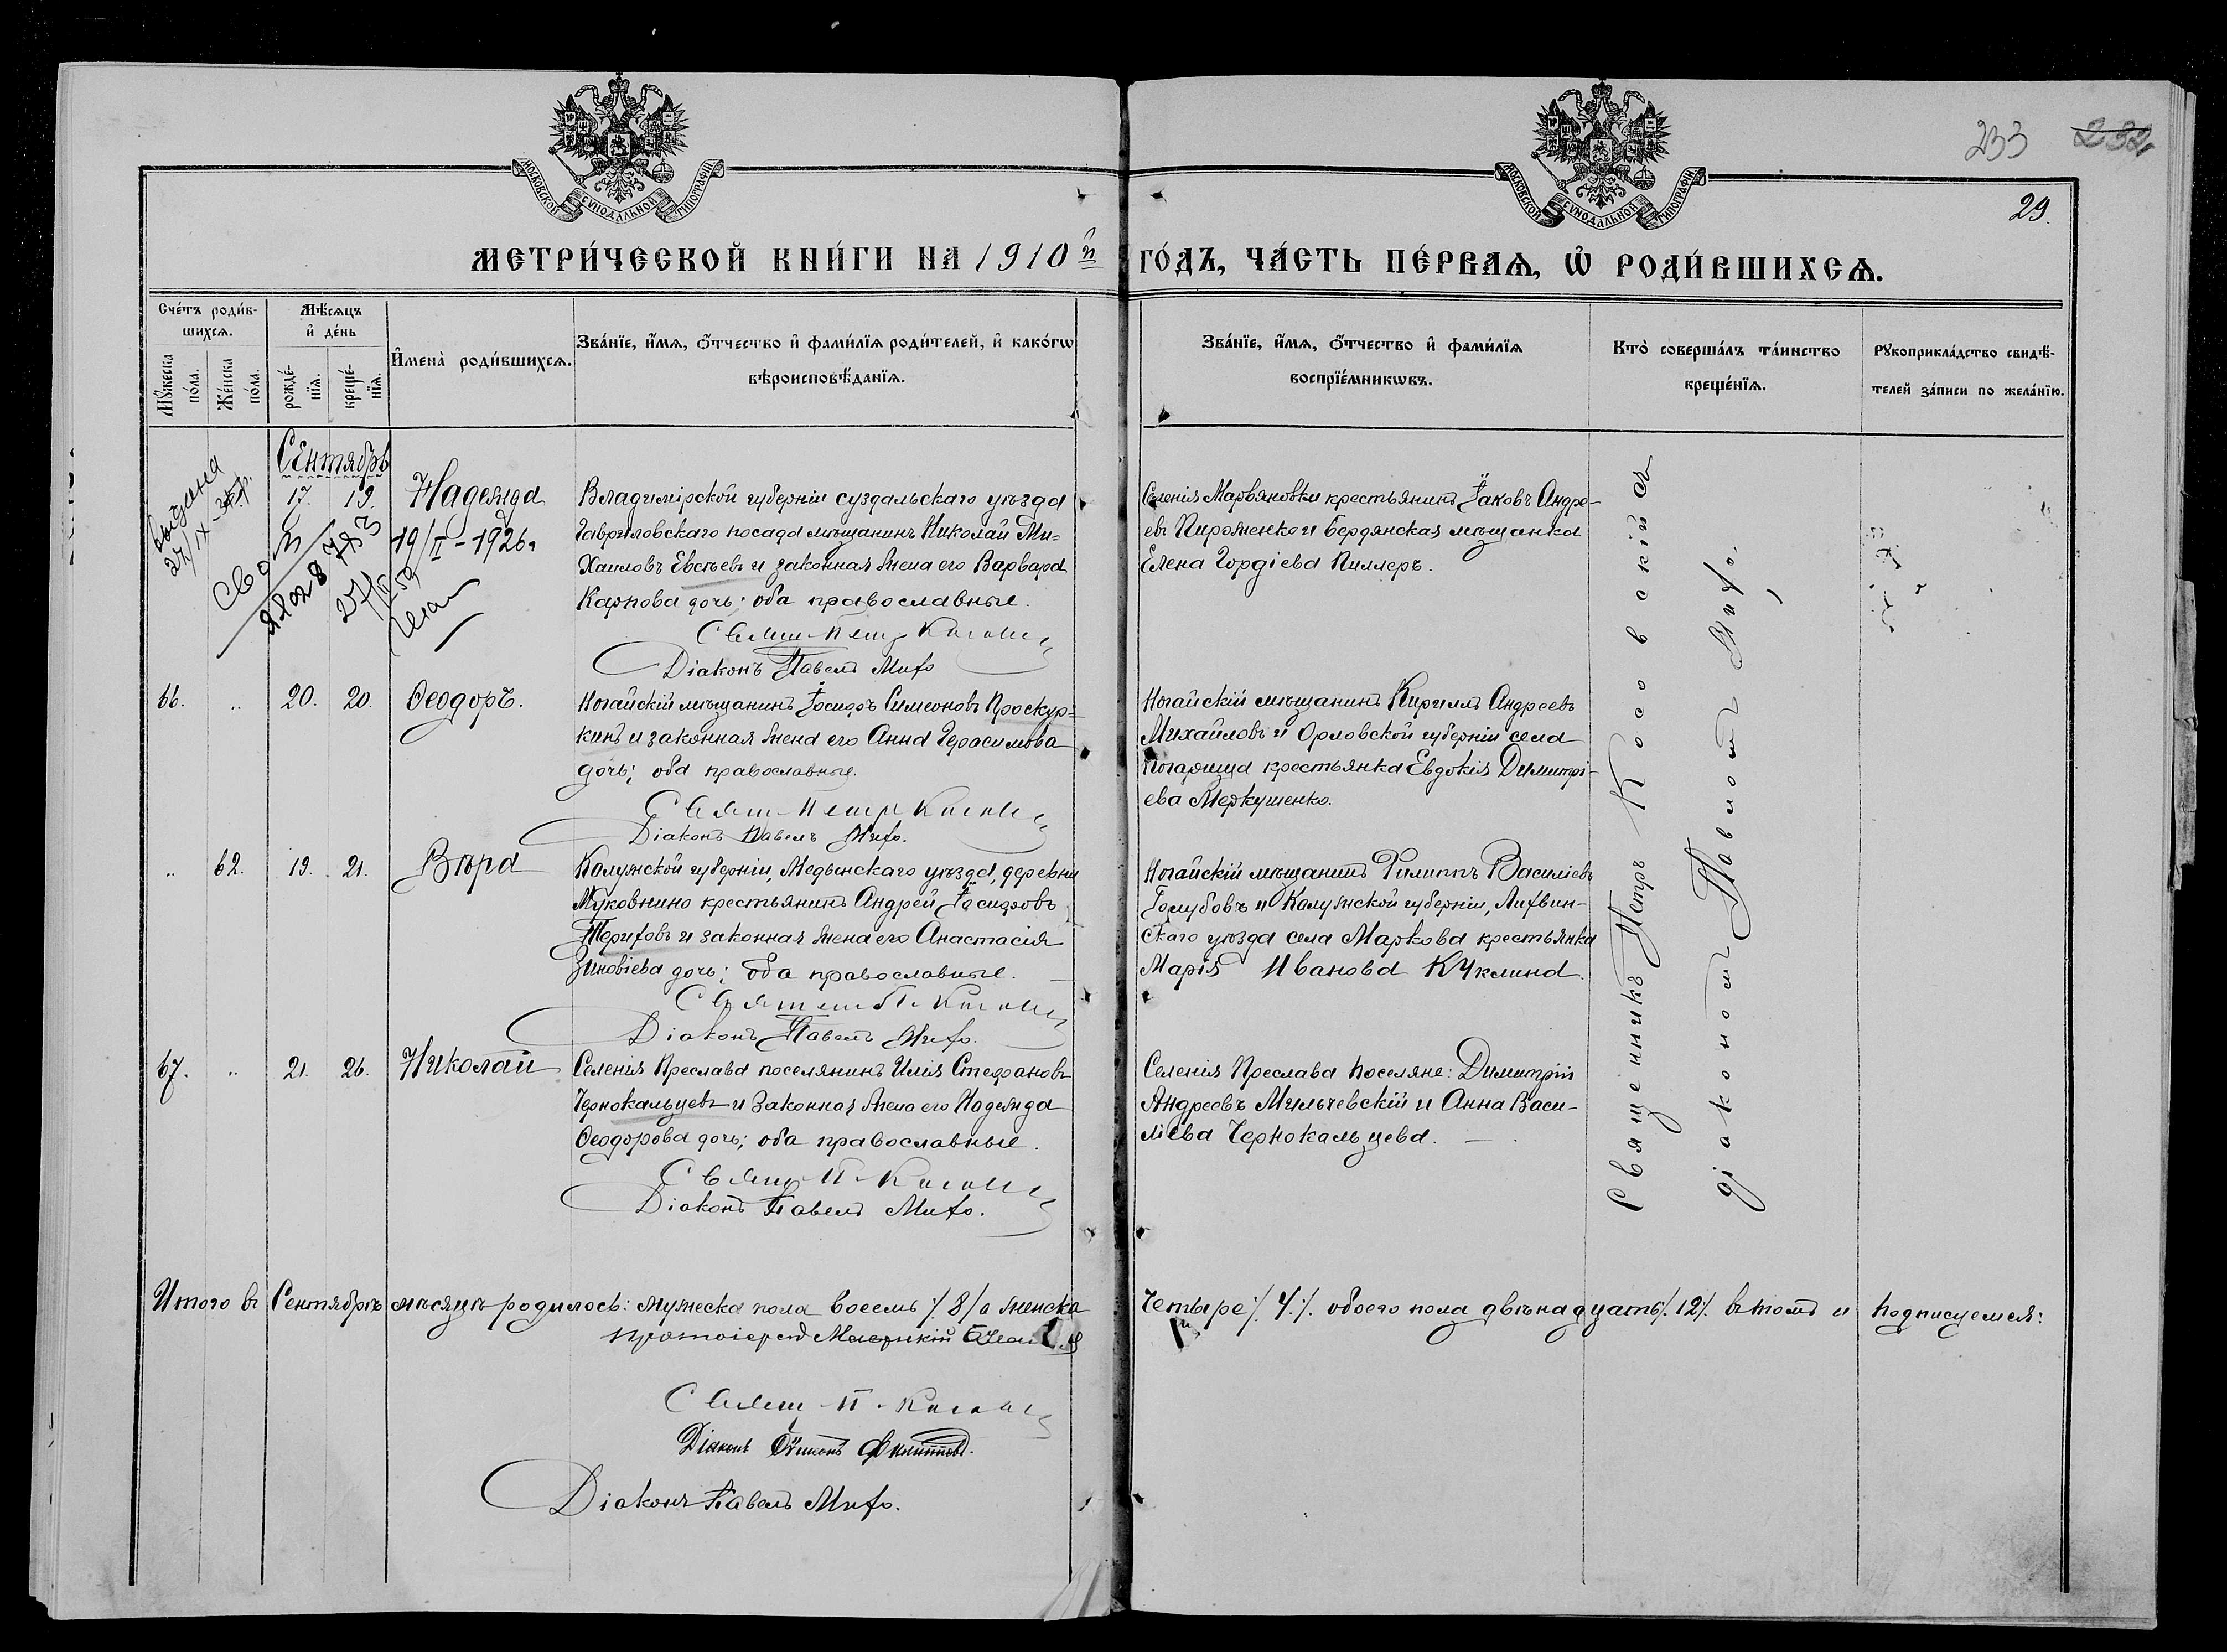 МОСКОВСКОЙ СУНОДАЛЬНОЙ ТИПОГРАФІИ
МОСКОВСКОЙ СУНОДАЛЬНОЙ ТИПОГРАФІИ
233 232
29.
МЕТРИ́ЧЕСКОЙ КНИ́ГИ НА 1910 й
ГО́ДЪ, ЧА́СТЬ ПЕ́РВАѦ, Ѡ҆ РОДИ́ВШИХСѦ.
Сче́тъ роди́в-
шихсѧ.
Мѣ́сѧцъ
и҆ де́нь
Мꙋ́жеска по́ла.
Же́нска по́ла.
рожде́-
нїѧ.
креще́-
нїѧ.
И҆мена̀ роди́вшихсѧ.
Зва́нїе, и҆́мѧ, ѻ҆́тчество и҆ фами́лїѧ роди́телей, и҆ како́гѡ
вѣроисповѣ́данїѧ.
Зва́нїе, и҆́мѧ, ѻ҆́тчество и҆ фами́лїѧ
воспрїе́мникѡвъ.
Кто̀ соверша́лъ та́инство
креще́нїѧ.
Рꙋкоприкла́дство свидѣ́-
телей за́писи по жела́нїю.
Сентябрь
17. 19. Надежда
19/II - 1926 г
Владимірской губерніи суздальскаго уѣзда
Гавриловскаго посада мѣщанинъ Николай Ми=
хаиловъ Евсѣевъ и законная жена его Варвара
Карпова дочь; оба православные.
Діаконъ Павелъ Мифо
Селенія Марьяновки крестьянинъ Іаковъ Андре-
евъ Пироженко и бердянская мѣщанка
Елена Гордіева Пиллеръ.
66. „ 20. 20. Ѳеодоръ.
Ногайскій мѣщанинъ Ісидоръ Симеоновъ Проскур=
кинъ и законная жена его Анна Герасимова
дочь; оба православные.
Діаконъ Павелъ Мифо.
Ногайскій мѣщанинъ Кириллъ Андреевъ
Михайловъ и Орловской губерніи села
Погарища крестьянка Евдокія Димитрі-
ева Меркушенко.
„ 62. 19. 21. Вѣра
Калужской губерніи, Медынскаго уѣзда, деревни
Муковнино крестьянинъ Андрей Ісидоровъ
Терифовъ и законная жена его Анастасія
Зиновіева дочь; оба православные.
Діаконъ Павелъ Мифо.
Ногайскій мѣщанинъ Филиппъ Василіевъ
Голубовъ и Калужской губерніи, Лихвин-
скаго уѣзда села Маркова крестьянка
Марія Иванова Куклина.
67. „ 21. 26. Николай
Селенія Преслава поселянинъ Илія Стефановъ
Чернокальцевъ и законная жена его Надежда
Ѳеодорова дочь; оба православные.
Діаконъ Павелъ Мифо.
Селенія Преслава поселяне: Димитрій
Андреевъ Мильчевскій и Анна Васи-
ліева Чернокальцева.
Священникъ Петръ Косовскій съ
діакономъ Павломъ Мифо.
Итого въ Сентябрѣ мѣсяцѣ родилось: мужеска пола восемь /. 8 /. а женска
четыре /. 4 /. обоего пола двѣнадцать /. 12 /. въ томъ и подписуемся:
Діаконъ Филипповъ.
Діаконъ Павелъ Мифо.